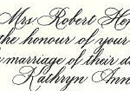 Mrs Robert He
the honour of your
e marriage of their d
Kathryn Ann